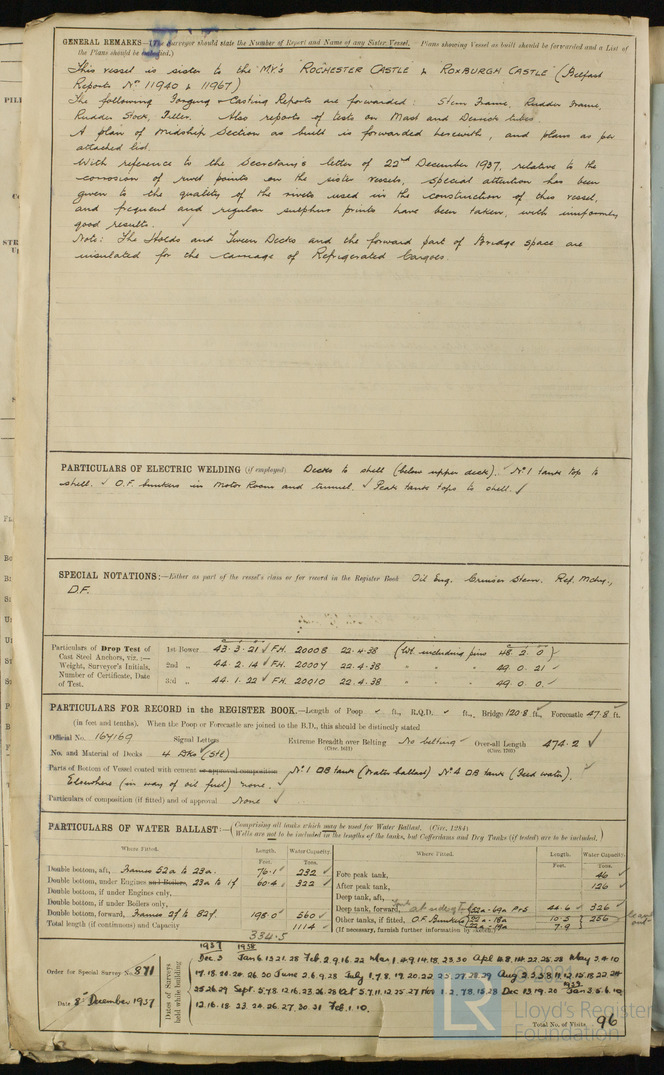 GENERAL REMARKS—(The Surveyor should state the Number of Report and Name of any Sister Vessel. Plans showing Vessel as built should be forwarded and a List of
the Plans should be embodied.)
This vessel is sister to the M.V's ROCHESTER CASTLE & ROXBURGH CASTLE (Belfast
Reports No. 11940 & 11967)
The following Forging & Casting Reports are forwarded: Stern Frame, Rudder Frame,
Rudder Stock, Tiller. Also reports of tests on Mast and Derrick tubes.
A plan of Midship Section as built is forwarded herewith, and plans as per
attached list.
With reference to the Secretary's letter of 22nd December 1937, relative to the
corrosion of rivet points on the sister vessels, special attention has been
given to the quality of the rivets used in the construction of this vessel,
and frequent and regular sulphur prints have been taken, with uniformly
good results. ✓
Note: The Holds and Tween Decks and the forward part of Bridge space are
insulated for the carriage of Refrigerated Cargoes.
PARTICULARS OF ELECTRIC WELDING (if employed) Decks to shell (below upper deck). ✓ No 1 tank top to
shell. ✓ O.F. bunkers in Motor Room and tunnel. ✓ Peak tank tops to shell. ✓
SPECIAL NOTATIONS:—Either as part of the vessel's class or for record in the Register Book Oil Eng. Cruiser Stern. Ref. Mchy.,
D.F.
Particulars of Drop Test of 1st Bower 43.3.21 ✓ F.H. 20008 22.4.38 (Wt. including pins 48.2.0)
Cast Steel Anchors, viz.:—
Weight, Surveyor's Initials, 2nd „ 44.2.14 ✓ F.H. 20007 22.4.38 „ „ „ 49.0.21 ✓
Number of Certificate, Date
of Test. 3rd „ 44.1.22 ✓ F.H. 20010 22.4.38 „ „ „ 49.0.0. ✓
PARTICULARS FOR RECORD in the REGISTER BOOK.—Length of Poop ✓ ft., R.Q.D. ✓ ft., Bridge 120.8 ft., Forecastle 47.8 ft.
(in feet and tenths). When the Poop or Forecastle are joined to the B.D., this should be distinctly stated
Official No. 167169 Signal Letters Extreme Breadth over Belting No belting ✓ Over-all Length 474.2 ✓
(Circ. 1611) (Circ. 1703)
No. and Material of Decks 4 Dks (Stl)
Parts of Bottom of Vessel coated with cement or approved composition No 1 DB tank (Water ballast) No 4 DB tank (Feed water).
Elsewhere (in way of oil fuel) none. ✓
Particulars of composition (if fitted) and of approval None ✓
PARTICULARS OF WATER BALLAST:—(Comprising all tanks which may be used for Water Ballast. (Circ. 1284)
Wells are not to be included in the lengths of the tanks, but Cofferdams and Dry Tanks (if tested) are to be included.)
Where Fitted. Length. Water Capacity. Where Fitted. Length. Water Capacity.
Feet. Tons. Feet. Tons.
Double bottom, aft, Frames 52a to 23a. 76.1 ✓ 232 ✓ Fore peak tank, 46 ✓
Double bottom, under Engines and Boilers, 23a to 1f 60.4 ✓ 322 ✓ After peak tank, 126 ✓
Double bottom, if under Engines only, Deep tank, aft,
Double bottom, if under Boilers only, Deep tank, forward, 52a - 69a P&S 44.6 ✓ 326 ✓
Double bottom, forward, Frames 2f to 82f. 198.0 ✓ 560 ✓ Other tanks, if fitted, O.F. Bunkers 10.5 256
Total length (if continuous) and Capacity 334.5 1114 ✓ (If necessary, furnish further information by sketch.) 7.9
Order for Special Survey No. 871
Date 8th December 1937
Dates of Surveys held while building
1937 1938
Dec 3 Jan 6.13.21.28 Feb 2.9.16.22 Mar 1.4.9.14.18.23.30 Apl 4.8.14.22.25.28 May 3.4.10
17.18.20.24.26.30 June 2.6.9.28 July 1.7.8.19.20.22 25.27.28.29 Aug 2.3.5.8.11.12.15.18.22.24
25.26.29 Sept. 5.7.8.12.16.23.26.28 Oct 5.7.11.12.25.27 Nov 1.2.7.8.15.28 Dec 13.19.20 1939 Jan 3.5.6.10
12.16.18.23.24.26.27.30.31 Feb.1.10.
Total No. of Visits 96
© 2021
LR
Lloyd's Register
Foundation